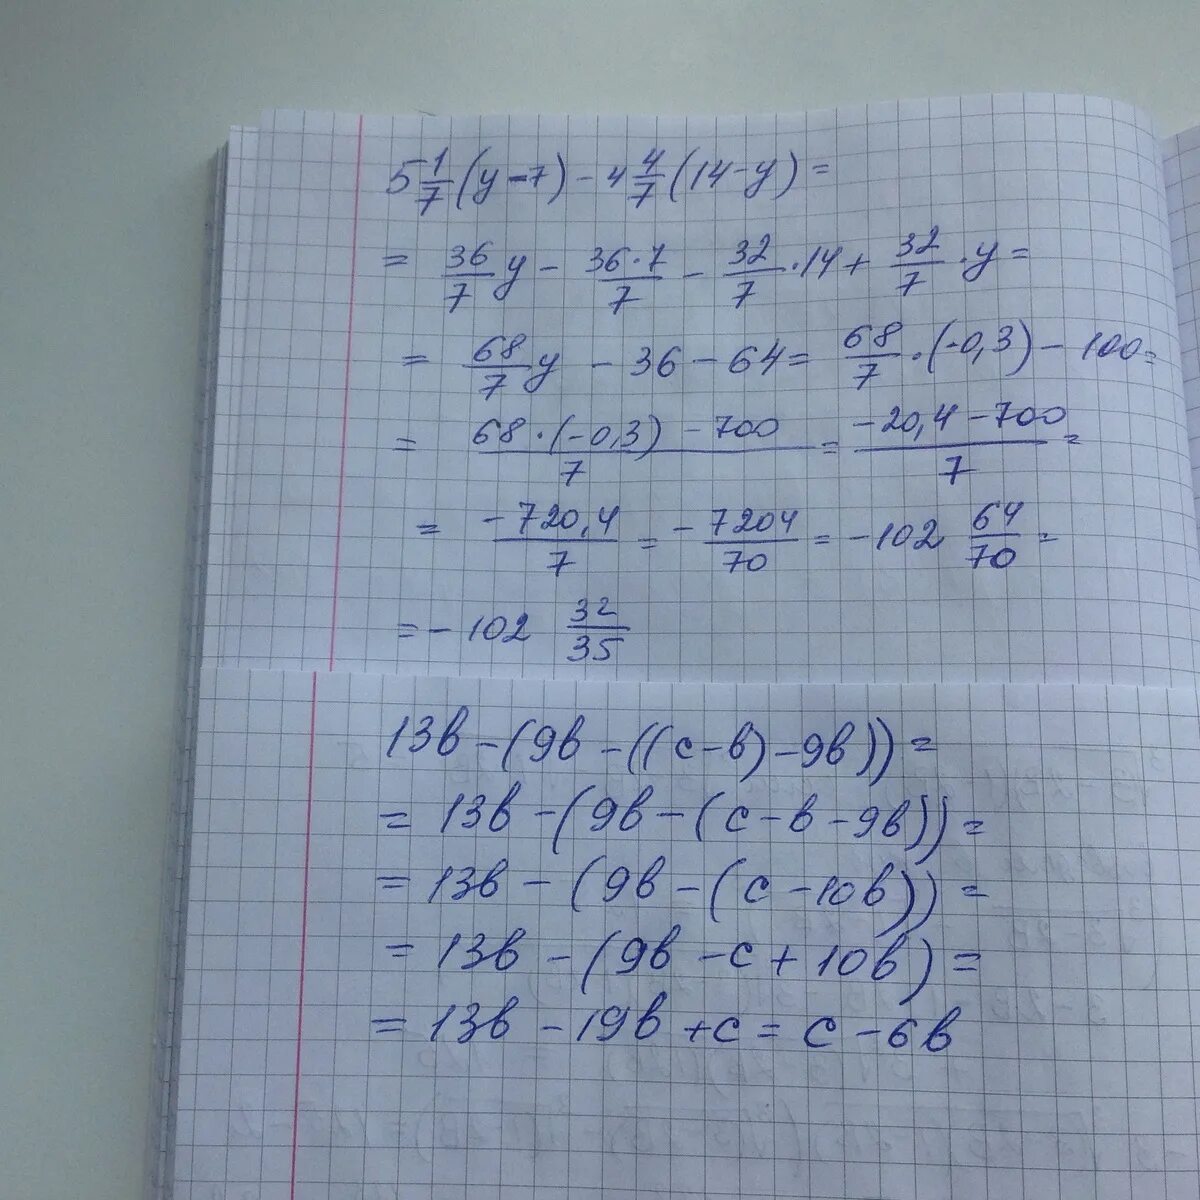 5 1/7 (y-7) - 4 4/7 (14-y) =
= 36/7 y - 36·7/7 - 32/7 ·14 + 32/7 ·y =
= 68/7 y - 36 - 64 = 68/7 ·(-0,3) - 100 =
= 68·(-0,3) - 700/7 = -20,4 - 700/7 =
= -720,4/7 = - 7204/70 = -102 64/70 =
= - 102 32/35
13в - (9в - ((с-в) - 9в)) =
= 13в - (9в - (с - в - 9в)) =
= 13в - (9в - (с - 10в)) =
= 13в - (9в - с + 10в) =
= 13в - 19в + с = с - 6в